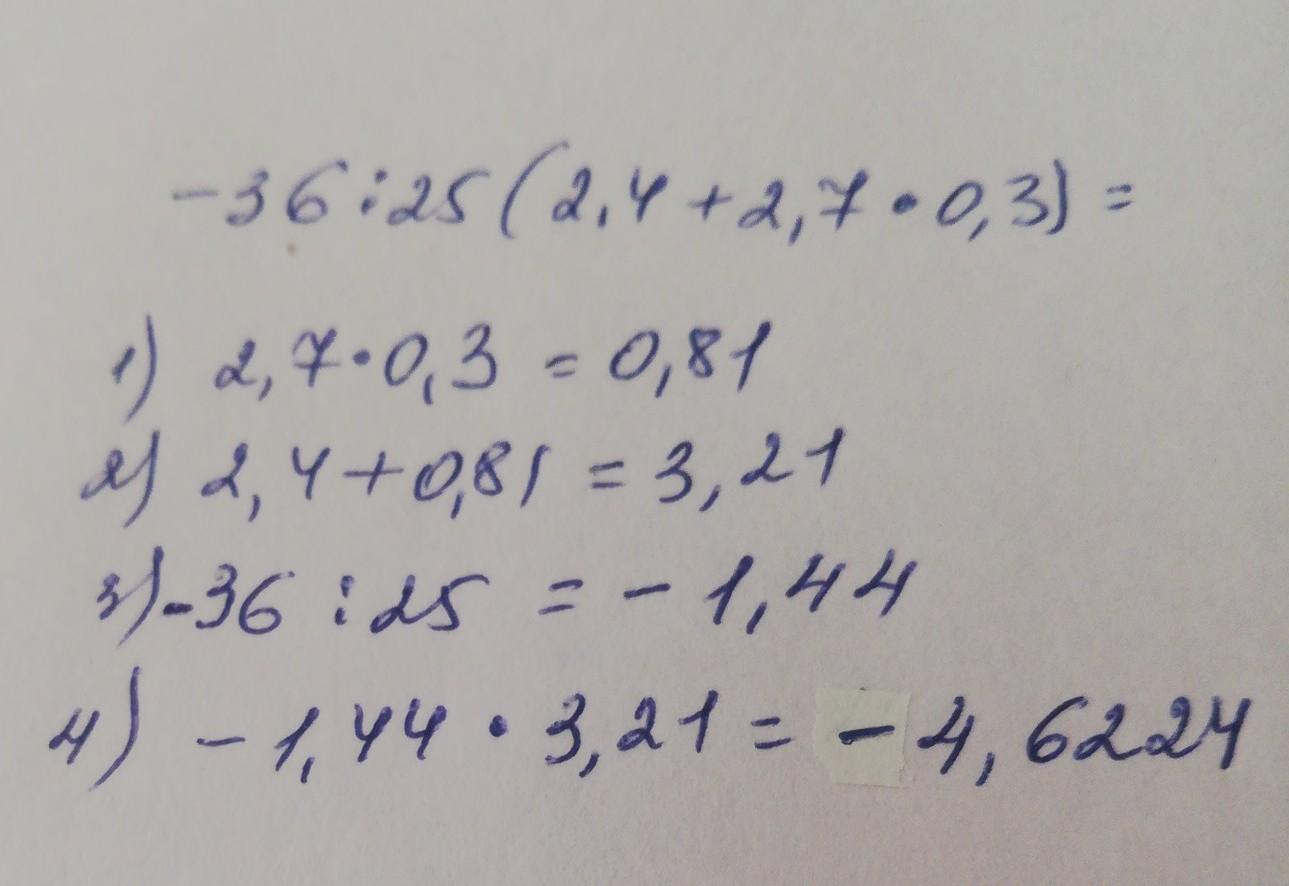 -36:25(2,4+2,7•0,3)=
1) 2,7•0,3=0,81
2) 2,4+0,81=3,21
3) -36:25=-1,44
4) -1,44•3,21=-4,6224